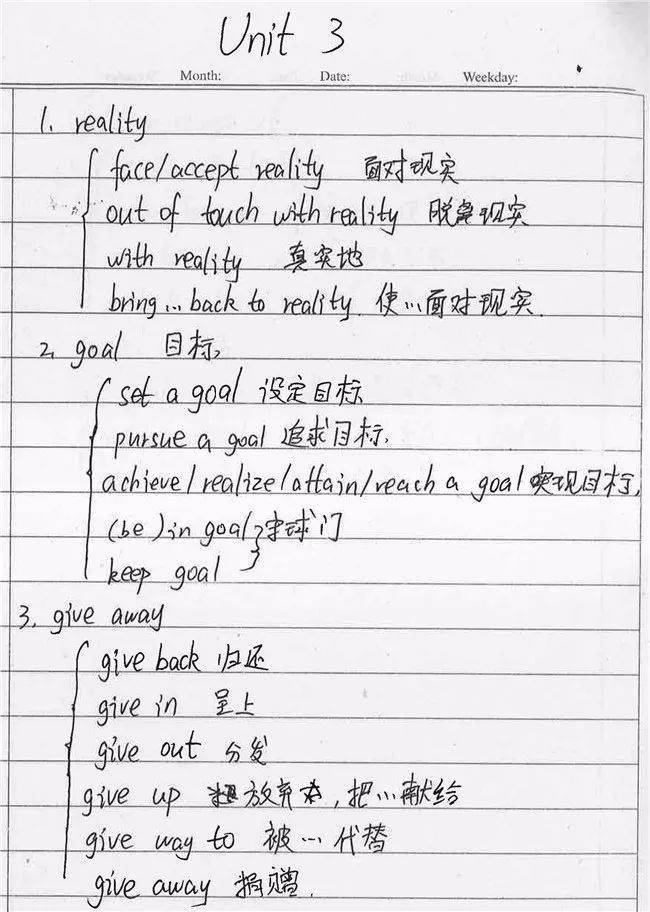 Unit 3
Month: Date: Weekday:
1. reality
face/accept reality 面对现实
out of touch with reality 脱离现实
with reality 真实地
bring...back to reality 使…面对现实.
2. goal 目标,
set a goal 设定目标
pursue a goal 追求目标.
achieve/realize/attain/reach a goal 实现目标,
(be) in goal 守球门
keep goal
3. give away
give back 归还
give in 呈上
give out 分发
give up 放弃, 把…献给
give way to 被…代替
give away 捐赠.